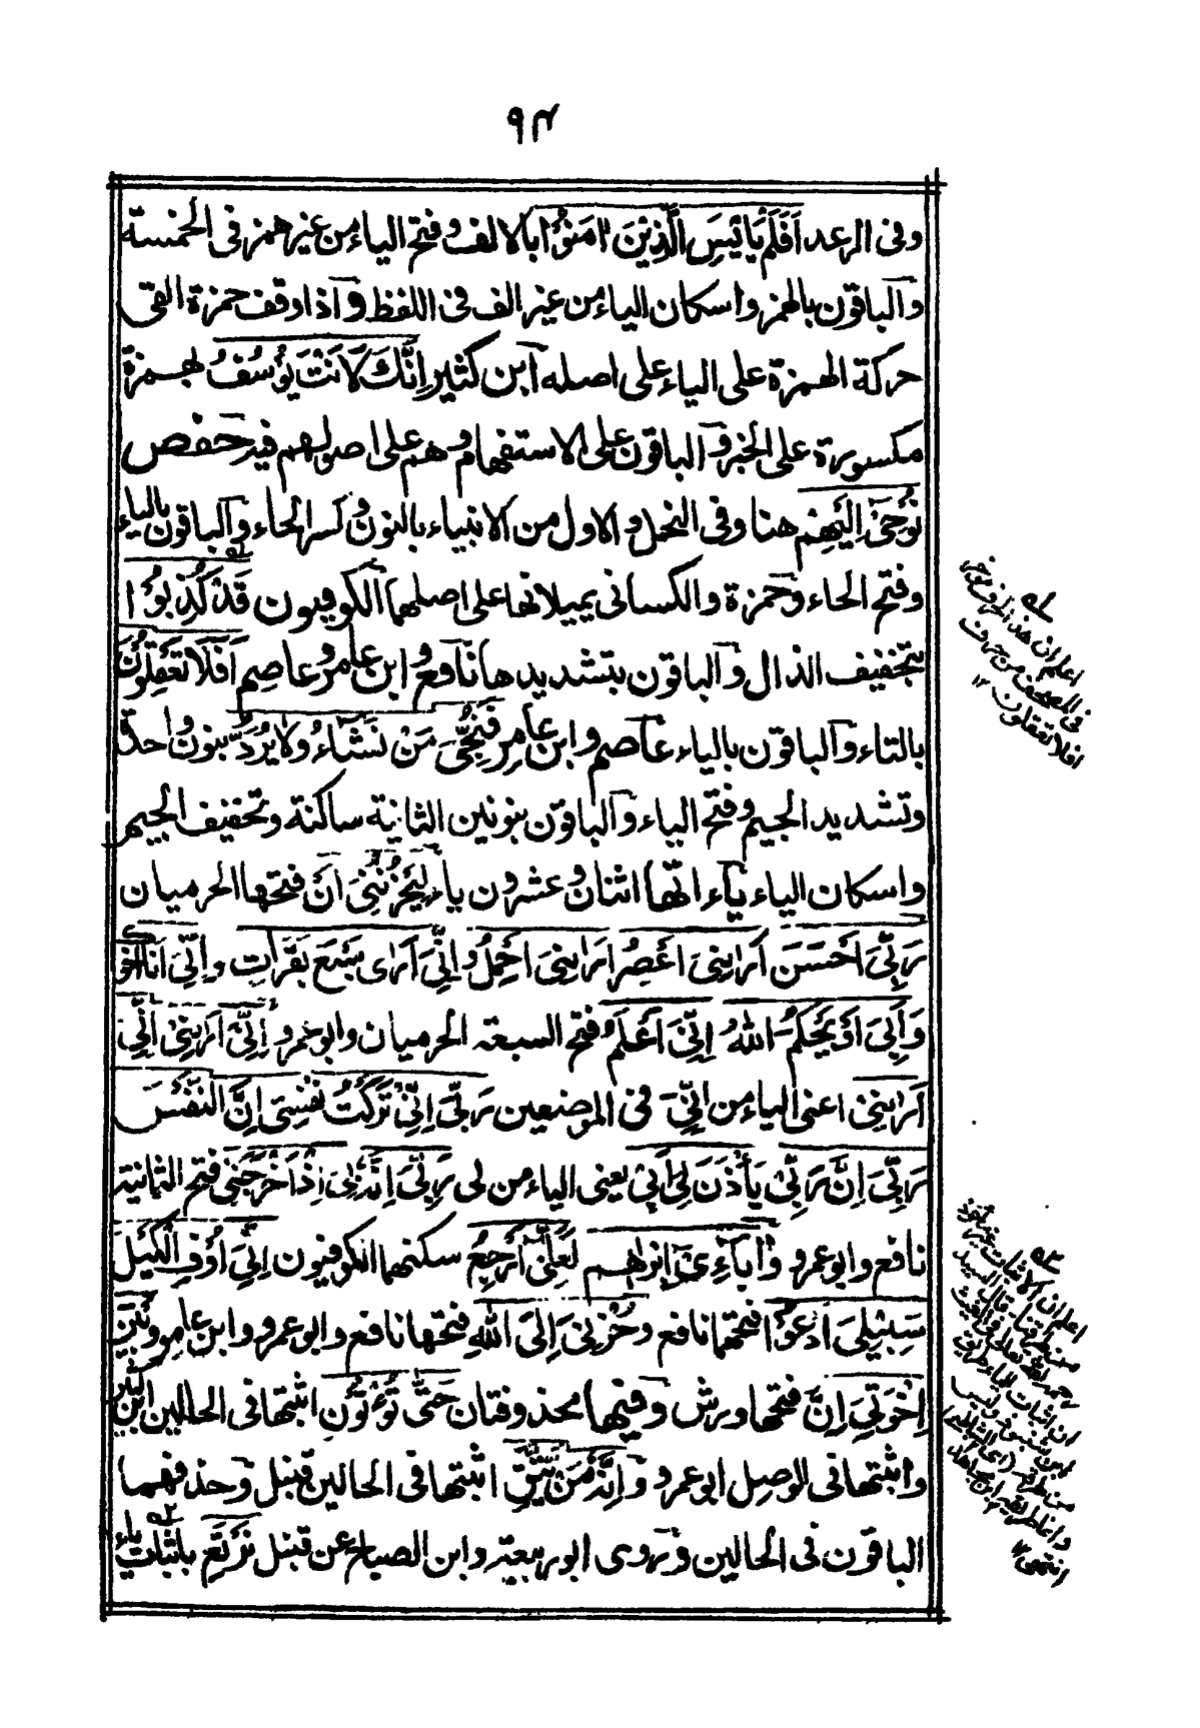 ٩٣
وفى الرعد اَفَلَمْ يَايْئَسِ الَّذِيْنَ اٰمَنُوْا بالالف وفتح الياء من غير همز فى الخمسة
والباقون بالهمز واسكان الياء من غير الف فى اللفظ واذا وقف حمزة القى
حركة الهمزة على الياء على اصله ابن كثير اِنَّكَ لَاَنْتَ يُوْسُفُ بهمزة
مكسورة على الخبر والباقون على الاستفهام وهم على اصولهم فيه حفص
نُوْحِىْ اِلَيْهِمْ هنا وفى النحل والاول من الانبياء بالنون وكسر الحاء والباقون بالياء
وفتح الحاء وحمزة والكسائى يميلانها على اصلهما الكوفيون قَدْ كُذِبُوْا
بتخفيف الذال والباقون بتشديدها نافع وابن عامر وعاصم اَفَلَا تَعْقِلُوْنَ
بالتاء والباقون بالياء عاصم وابن عامر فَنُجِّىَ مَنْ نَشَاءُ وَلَا يُرَدُّ بنون واحدة
وتشديد الجيم وفتح الياء والباقون بنونين الثانية ساكنة وتخفيف الجيم
واسكان الياء ياءاتها اثنان وعشرون ياء لَيَحْزُنُنِىْ اَنْ فتحها الحرميان
رَبِّىْ اَحْسَنَ اَرَانِىْ اَعْصِرُ اَرَانِىْ اَحْمِلُ اِنِّىْ اَرٰى سَبْعَ بَقَرَاتٍ واِنِّىْ اَنَا اَخُوْ
وَاَبِىْ اَوْ يَحْكُمَ اللّٰهُ اِنِّىْ اَعْلَمُ فتح السبعة الحرميان وابو عمرو اِنِّىْ اَرَانِىْ اِنِّىْ
اَرَانِىْ اعنى الياء من اِنِّىْ فى الموضعين رَبِّىْ اِنِّىْ تَرَكْتُ نَفْسِىْ اِنَّ النَّفْسَ
رَبِّىْ اِنَّ رَبِّىْ يَاْذَنَ لِىْ اَبِىْ يعنى الياء من لى رَبِّىْ اِنَّهُ بِىْ اِذْ اَخْرَجَنِىْ فتح الثمانية
نافع وابو عمرو وَاٰبَآءِىْ اِبْرَاهِيْمَ لَعَلِّىْ اَرْجِعُ سكنهما الكوفيون اِنِّىْ اُوْفِ الْكَيْلَ
سَبِيْلِىْ اَدْعُوْا فتحهما نافع وَحُزْنِىْ اِلَى اللّٰهِ فتحها نافع وابو عمرو وابن عامر وَبَيْنَ
اِخْوَتِىْ اِنَّ فتحها ورش وفيها محذوفتان حَتّٰى تُؤْتُوْنِ اثبتها فى الحالين ابن كثير
واثبتها فى الوصل ابو عمرو واِنَّهُ مَنْ يَّتَّقِ اثبتها فى الحالين قنبل وحذفهما
الباقون فى الحالين وروى ابو ربيعة وابن الصباح عن قنبل نَرْتَعِ باثبات ياء
اعلم ان هذا الحرف
افلا تعقلون ١٢
اعلم ان الاثبات
انتهى ١٢